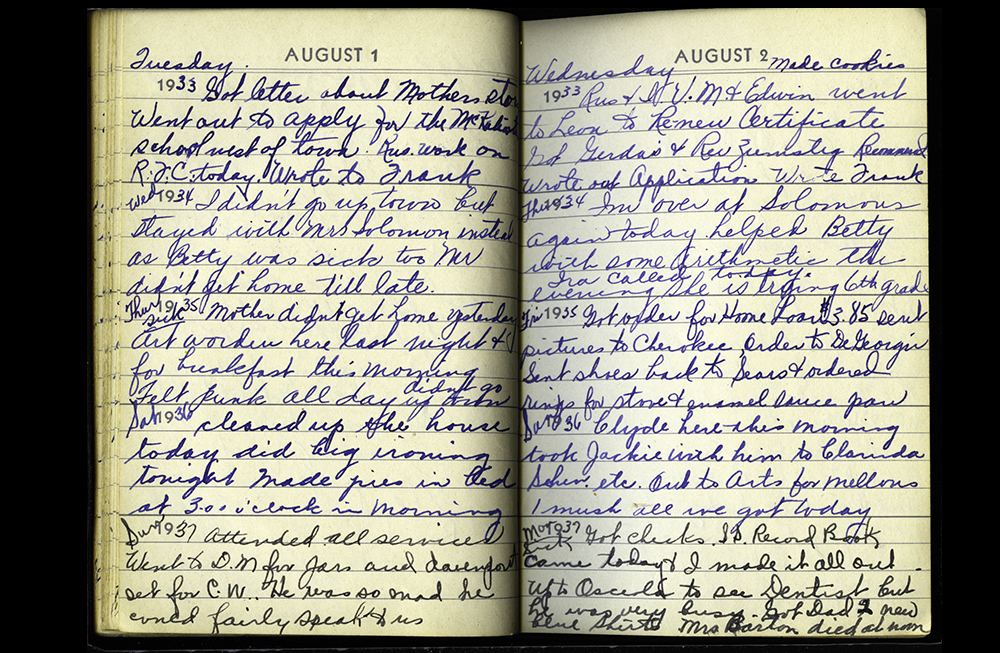 AUGUST 1
Tuesday.
1933 Got letter about Mothers
Went out to apply for the
school west of town. Rus. work on
R.F.C. today. Wrote to Frank
Wed 1934 I didn't go up town but
stayed with Mrs Solomon instead
as Betty was sick too Mr
didn't get home till late.
Thur 1935 Mother didn't get home yesterday
sick
Art worden here last night &
for breakfast this morning
didn't go
Felt punk all day up town
Sat 1936 cleaned up the house
today did big ironing
tonight Made pies in bed
at 3:00 o'clock in morning
Sun 1937 Attended all services
Went to D.M for jars and davenport
set for C.W. He was so mad he
could fairly speak to us
AUGUST 2
Wednesday Made cookies
1933 Rus & A.V.M & Edwin went
to Leon to Renew Certificate
Got Gerda's & Rev
Wrote out Application Write Frank
Thur 1934 I'm over at Solomons
again today helped Betty
with some arithmetic this
Ira called today.
evening She is trying 6th grade
Fri 1935 Got order for Home Loan $3.85 sent
pictures to Cherokee, Order to DeGeorgia
Sent shoes back to Sears & ordered
rings for stove & enamel sauce pan
1936 Clyde here this morning
took Jackie with him to Clarinda
Shen. etc. Out to Arts for mellons
1 mush all we got today
Mon 1937 Got checks. S.S. Record Book
sick
came today & I made it all out.
Up to Osceola to see Dentist but
he was very busy. Got Dad 2 new
blue shirts Mrs Barton died at noon